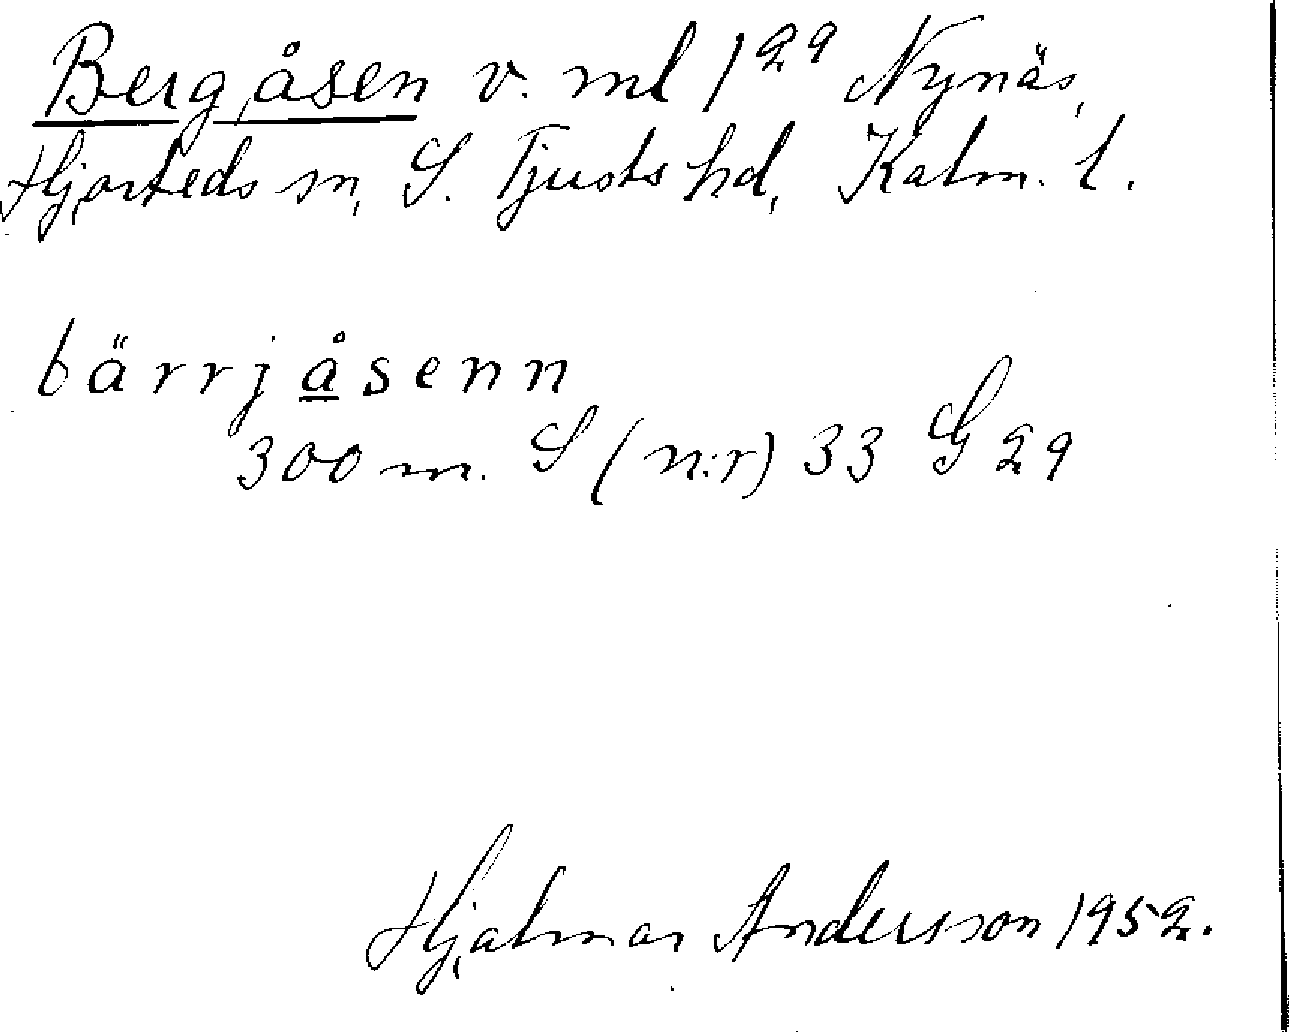 Bergåsen v. ml 1²⁹ Nynäs,
Hjorteds sn, S. Tjusts hd, Kalm. l.
bärrjåsenn
300 m. S (n:r) 33 G 29
Hjalmar Andersson 1952.